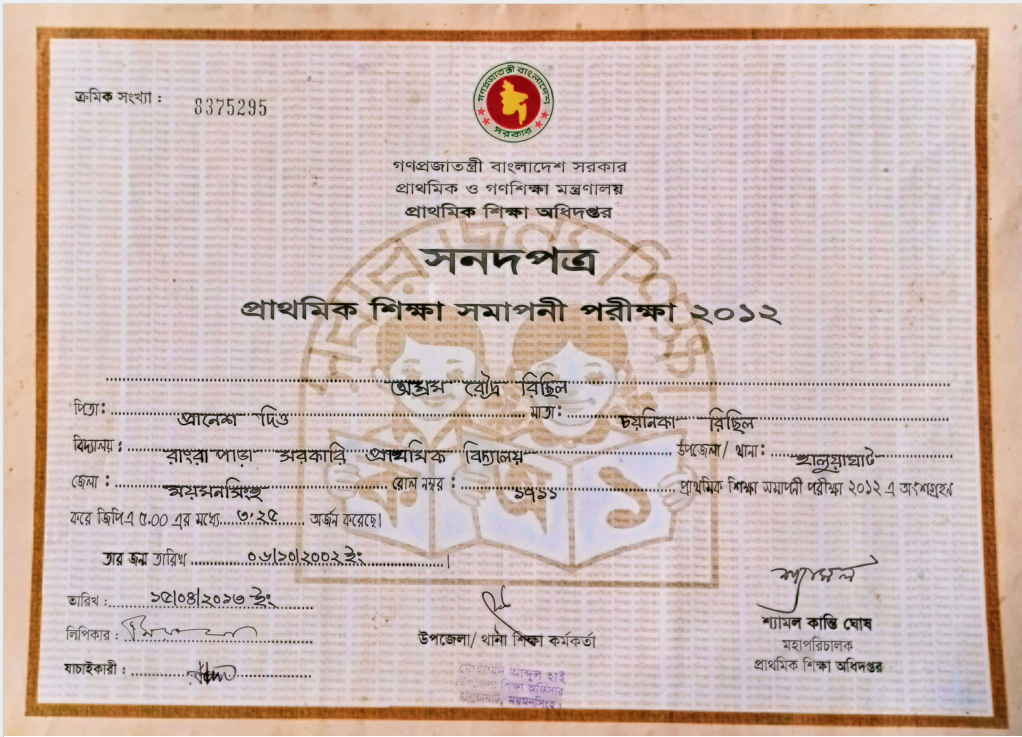 ক্রমিক সংখ্যা : 8375295
গণপ্রজাতন্ত্রী বাংলাদেশ
সরকার
গণপ্রজাতন্ত্রী বাংলাদেশ সরকার
প্রাথমিক ও গণশিক্ষা মন্ত্রণালয়
প্রাথমিক শিক্ষা অধিদপ্তর
সবার জন্য শিক্ষা
সনদপত্র
প্রাথমিক শিক্ষা সমাপনী পরীক্ষা ২০১২
রৌদ্র রিছিল
পিতা: প্রানেশ দিও মাতা: চয়নিকা রিছিল
বিদ্যালয় : রাংরাপাড়া সরকারি প্রাথমিক বিদ্যালয় উপজেলা/ থানা : হালুয়াঘাট
জেলা : ময়মনসিংহ রোল নম্বর : ১৭১১ প্রাথমিক শিক্ষা সমাপনী পরীক্ষা ২০১২ এ অংশগ্রহন
করে জিপিএ ৫.০০ এর মধ্যে ৩.২৫ অর্জন করেছে।
তার জন্ম তারিখ ০৬/১০/২০০২ ইং।
ক খ ১
তারিখ : ১৫/০৪/২০১৩ ইং
লিপিকার :
যাচাইকারী :
উপজেলা/ থানা শিক্ষা কর্মকর্তা
মোহাম্মদ আব্দুল হাই
উপজেলা শিক্ষা অফিসার
হালুয়াঘাট, ময়মনসিংহ।
শ্যামল
শ্যামল কান্তি ঘোষ
মহাপরিচালক
প্রাথমিক শিক্ষা অধিদপ্তর